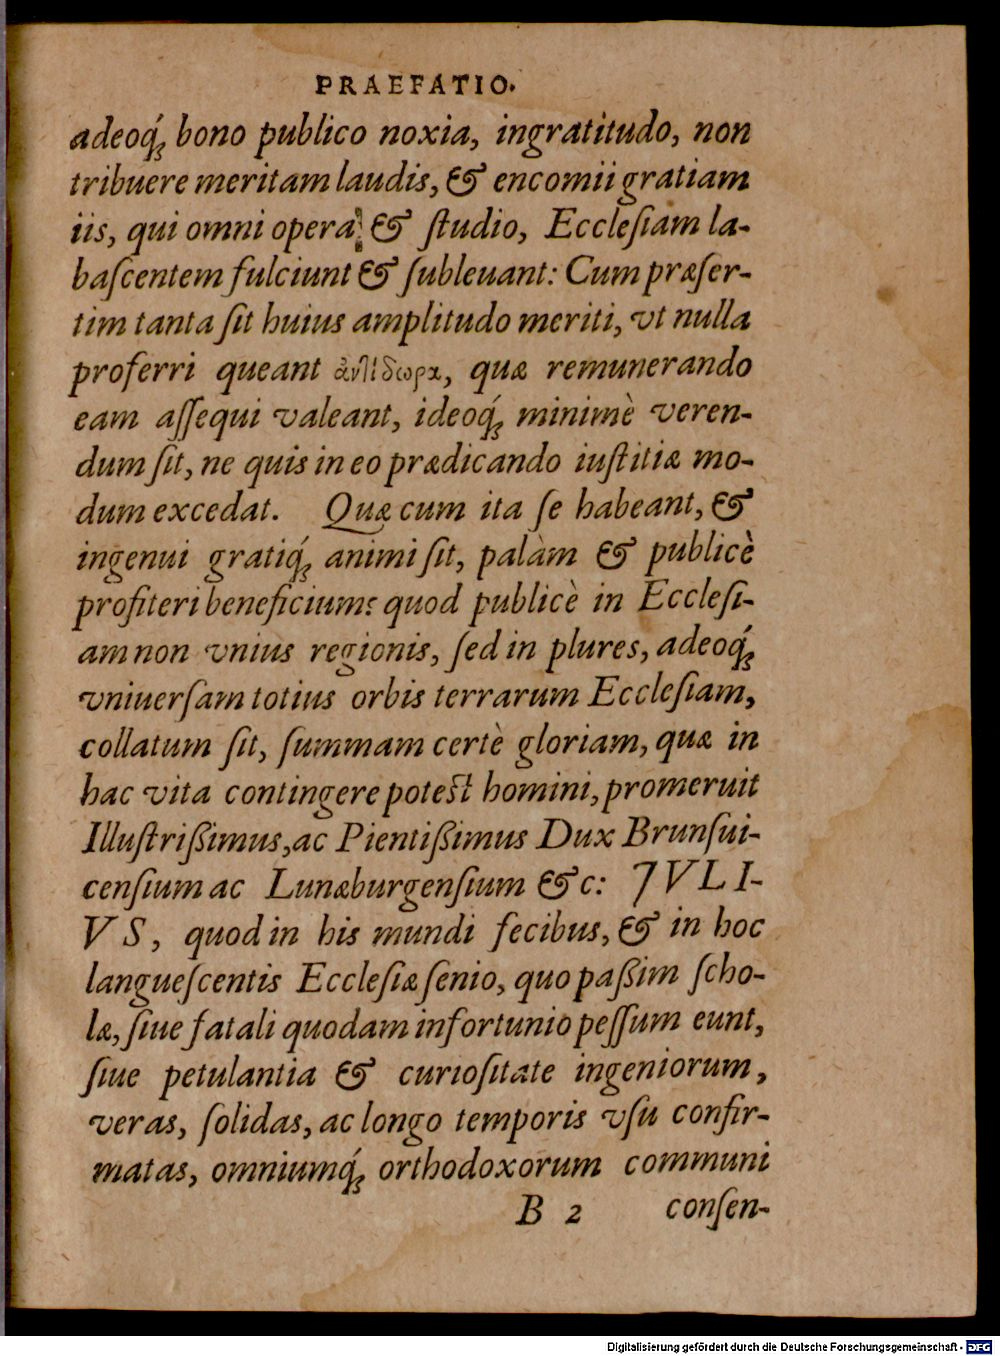 PRAEFATIO.
adeoq́ꝫ bono publico noxia, ingratitudo, non
tribuere meritam laudis, & encomii gratiam
iis, qui omni opera & ſtudio, Eccleſiam la-
baſcentem fulciunt & ſubleuant: Cum præſer-
tim tanta ſit huius amplitudo meriti, vt nulla
proferri queant ἀντίδωρα, quæ remunerando
eam aſſequi valeant, ideoq́ꝫ minimè veren-
dum ſit, ne quis in eo prædicando iuſtitiæ mo-
dum excedat. Quæ cum ita ſe habeant, &
ingenui gratiq́ꝫ animi ſit, palàm & publicè
profiteri beneficium: quod publicè in Eccleſi-
am non vnius regionis, ſed in plures, adeoq́ꝫ
vniuerſam totius orbis terrarum Eccleſiam,
collatum ſit, ſummam certè gloriam, quæ in
hac vita contingere poteſt homini, promeruit
Illuſtrißimus, ac Pientißimus Dux Brunſui-
cenſium ac Lunæburgenſium &c: JVLI-
VS, quod in his mundi fecibus, & in hoc
langueſcentis Eccleſiæ ſenio, quo paßim ſcho-
læ, ſiue fatali quodam infortunio peſſum eunt,
ſiue petulantia & curioſitate ingeniorum,
veras, ſolidas, ac longo temporis vſu confir-
matas, omniumq́ꝫ orthodoxorum communi
B 2 conſen-
Digitalisierung gefördert durch die Deutsche Forschungsgemeinschaft - DFG